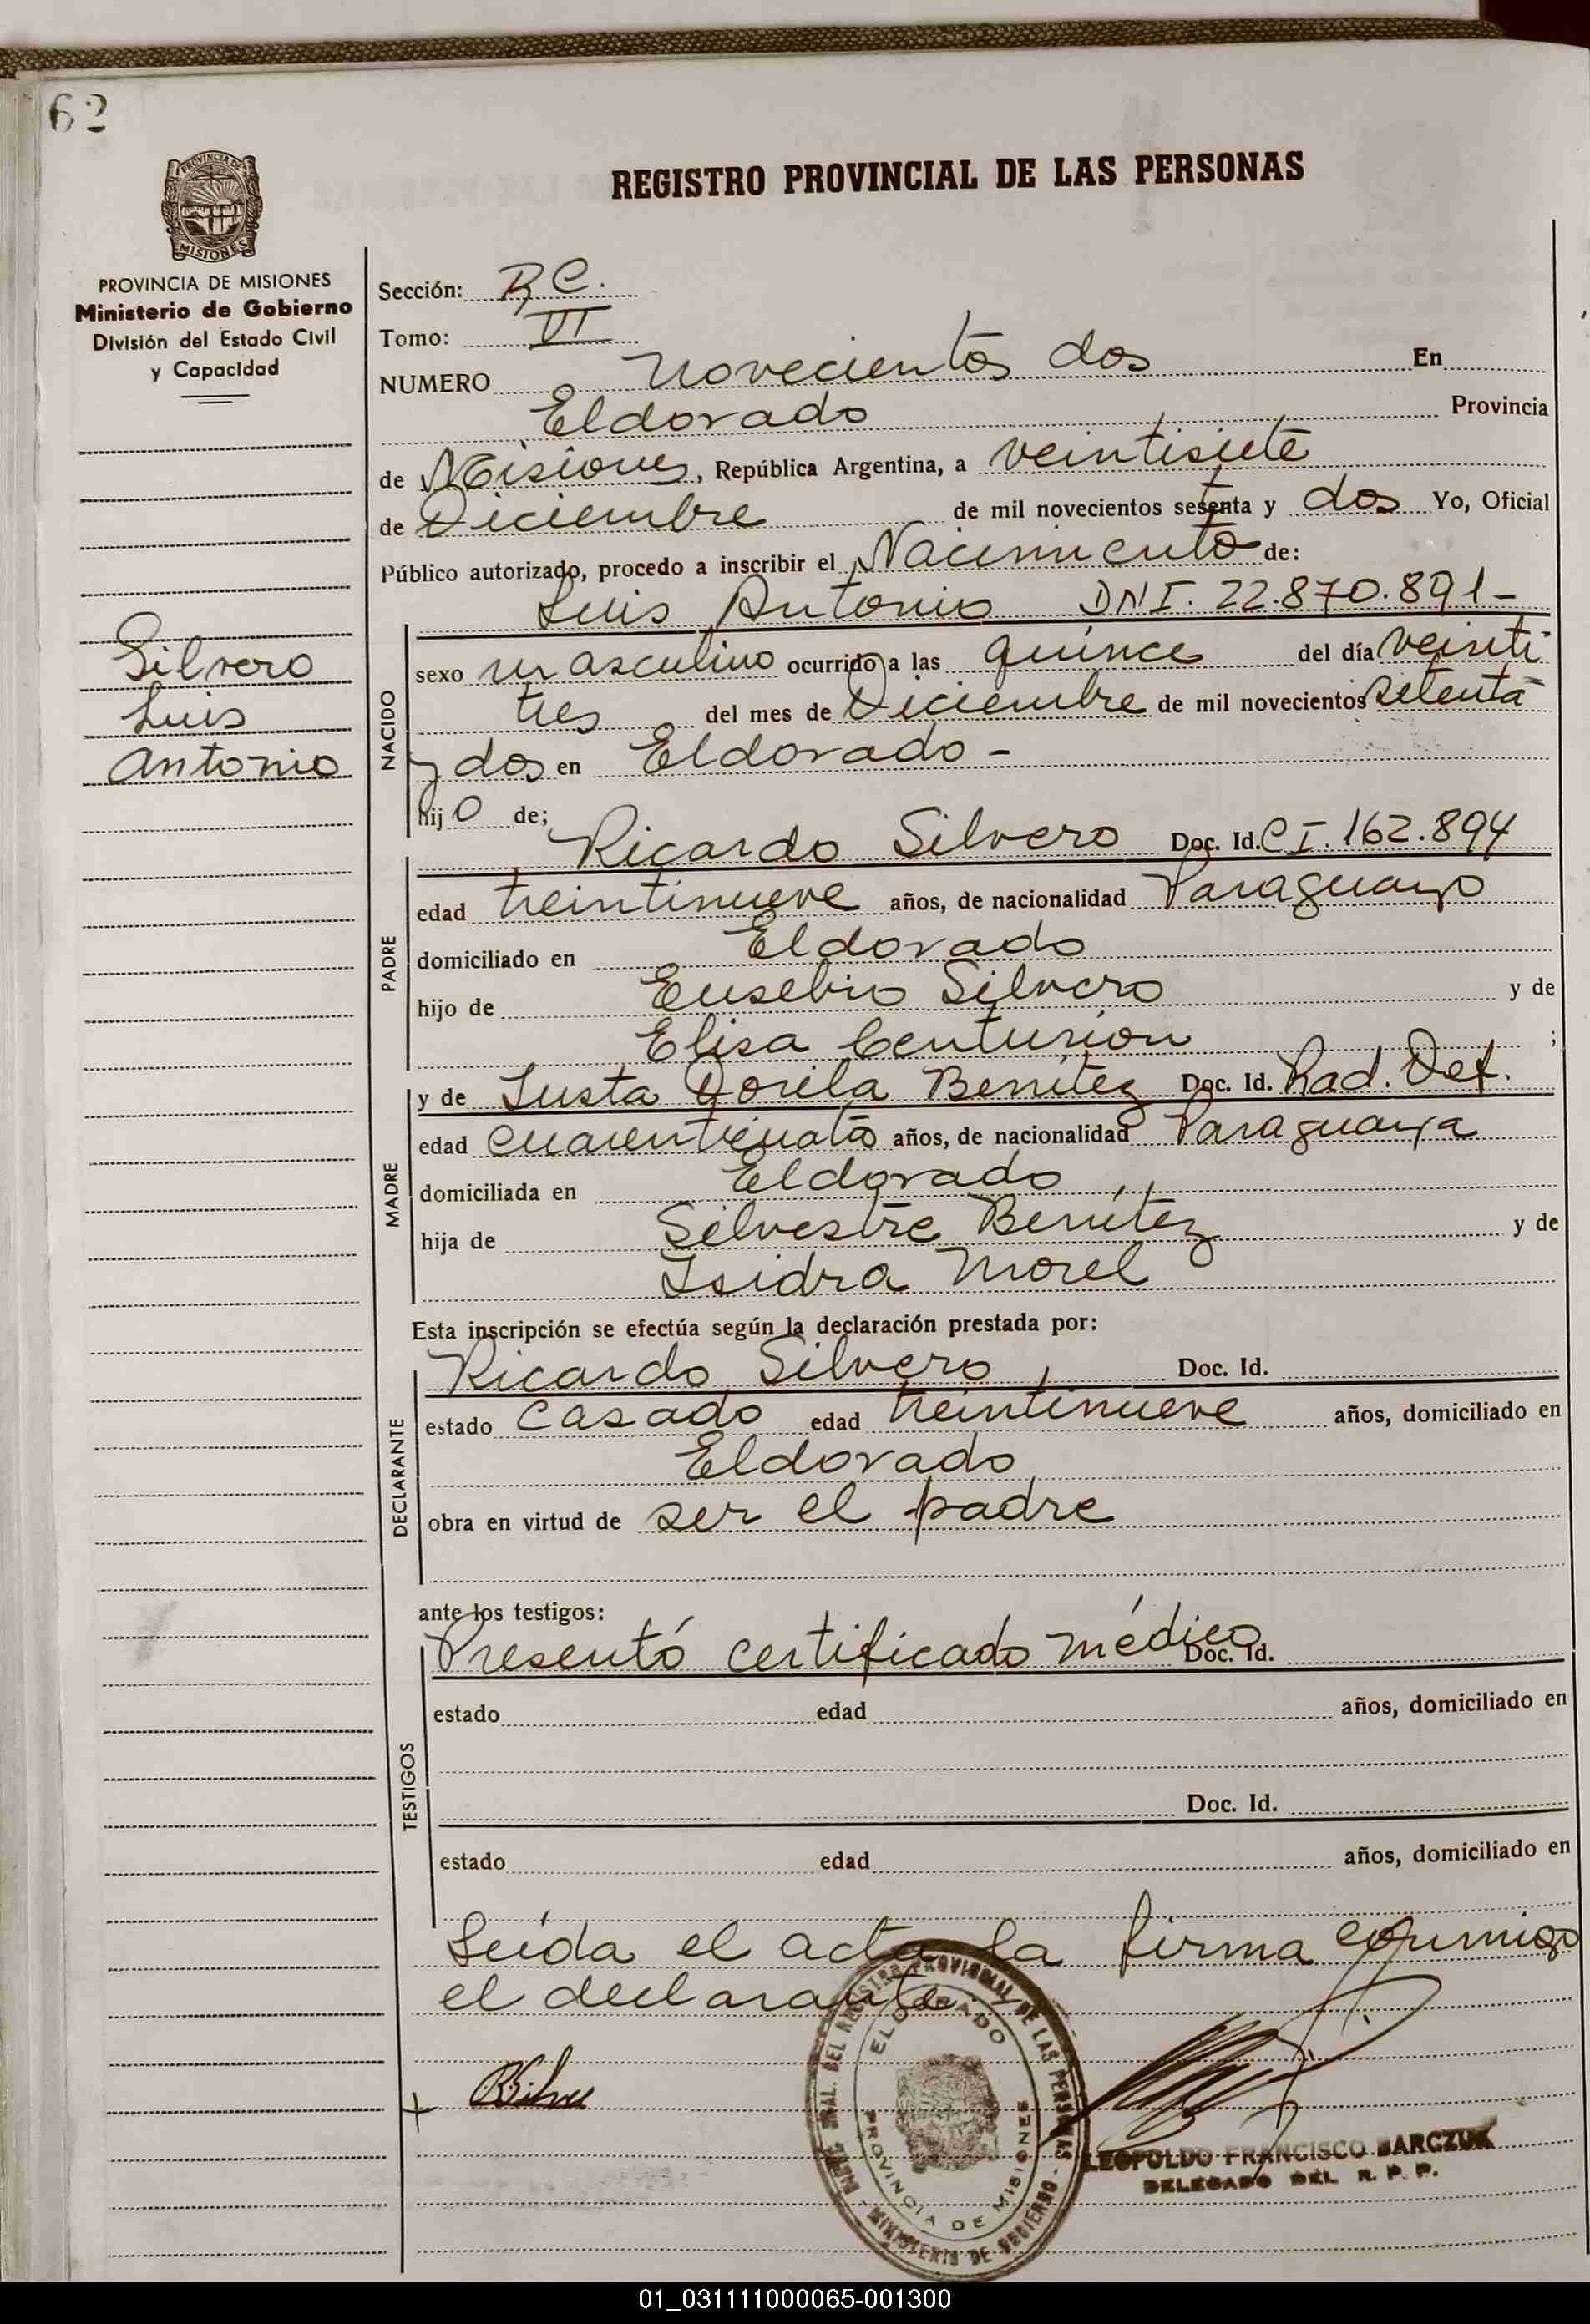 62
REGISTRO PROVINCIAL DE LAS PERSONAS
PROVINCIA DE MISIONES
MISIONES
PROVINCIA DE MISIONES
Ministerio de Gobierno
División del Estado Civil
y Capacidad
Silvero
Luis
Antonio
Sección: R C.
Tomo: VI
NUMERO novecientos dos En
Eldorado Provincia
de Misiones, República Argentina, a veintisiete
de Diciembre de mil novecientos setenta y dos Yo, Oficial
Público autorizado, procedo a inscribir el Nacimiento de:
Luis Antonio DNI. 22.870.891-
NACIDO
sexo masculino ocurrido a las quince del día veinti
tres del mes de Diciembre de mil novecientos setenta
y dos en Eldorado -
hijo de;
Ricardo Silvero Doc. Id. CI. 162.894
PADRE
edad treintinueve años, de nacionalidad Paraguayo
domiciliado en Eldorado
hijo de Eusebio Silvero y de
Elisa Centurión ;
y de Justa Dorila Benítez Doc. Id. Rad. Def.
MADRE
edad cuarenticuatro años, de nacionalidad Paraguaya
domiciliada en Eldorado
hija de Silvestre Benítez y de
Isidra Morel
Esta inscripción se efectúa según la declaración prestada por:
Ricardo Silvero Doc. Id.
DECLARANTE
estado casado edad treintinueve años, domiciliado en
Eldorado
obra en virtud de ser el padre
ante los testigos:
Presentó certificado médico Doc. Id.
TESTIGOS
estado edad años, domiciliado en
Doc. Id.
estado edad años, domiciliado en
Leída el acta la firma conmigo
el declarante.
DEL REGISTRO PROVINCIAL DE LAS PERSONAS - MINISTERIO DE GOBIERNO -
ELDORADO
PROVINCIA DE MISIONES
LEOPOLDO FRANCISCO BARCZUK
DELEGADO DEL R. P. P.
01_031111000065-001300